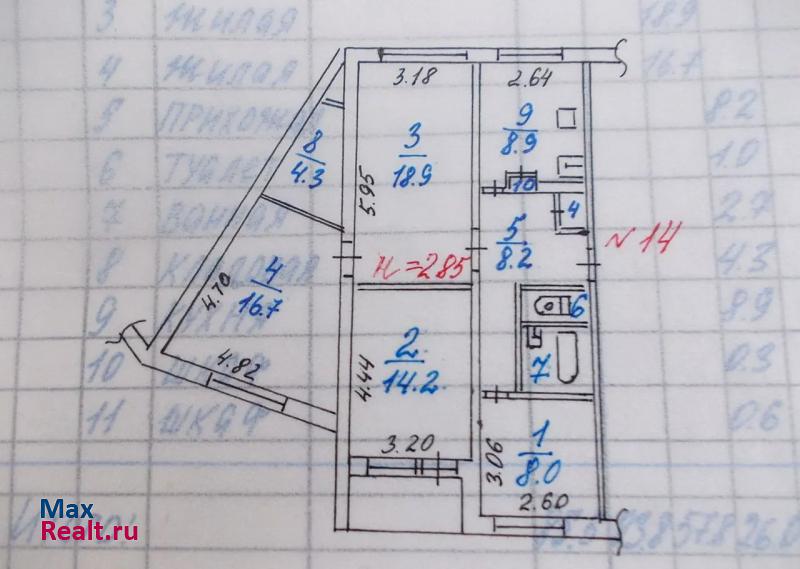 3 ЖИЛАЯ 18.9
4 ЖИЛАЯ 16.7
5 ПРИХОЖАЯ 8.2
6 ТУАЛЕТ 1.0
7 ВАННАЯ 2.7
8 КЛАДОВАЯ 4.3
9 КУХНЯ 8.9
10 ШКАФ 0.3
11 ШКАФ 0.6
3.18
2.64
8
4.3
3
18.9
9
8.9
5.95
10
4
5
8.2
N 14
H=285
4
16.7
4.70
6
4.82
2
14.2
4.44
7
3.20
3.06
1
8.0
2.60
Max
Realt.ru